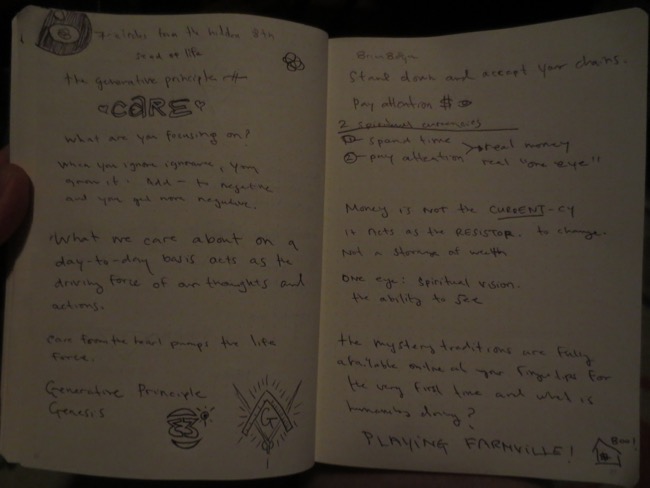 7-circles from the hidden 8th
seed of life
the generative principle
CARE
what are you focusing on?
When you ignore ignorance, you
grow it. Add — to negative
and you get more negative.
What we care about on a
day-to-day basis acts as the
driving force of our thoughts and
actions.
Care from the heart pumps the life
force.
Generative Principle
Genesis
G
Stand down and accept your chains.
Pay attention $
2 spiritual currencies
1 - spend time
real money
2 - pay attention
real "one eye"
Money is not the CURRENT-cy
it acts as the RESISTOR. to change.
Not a storage of wealth
ONE eye: spiritual vision.
the ability to see
the mystery traditions are fully
available online at your fingertips for
the very first time and what is
humanity doing?
PLAYING FARMVILLE!
Boo!